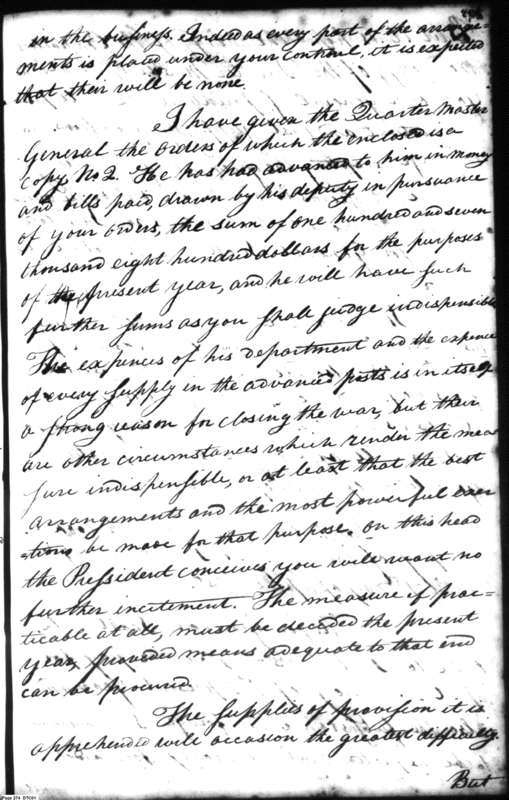 in the business. Indeed as every part of the arrange=
ments is placed under your controul, it is expected
that their will be none.
I have given the Quarter Master
General the orders of which the enclosed is a
Copy No 2. He has had advanced to him in money
and bills paid, drawn by his deputy in pursuance
of your orders, the sum of one hundred and seven
thousand eight hundred dollars for the purposes
of the present year, and he will have such
further sums as you shall judge indispensible
The expences of his department and the expence
of every supply in the advanced posts is in itself
a strong reason for closing the war, but their
are other circumstances which render the mea
sure indispensible, or at least that the best
arrangements and the most powerful exer
=tions be made for that purpose. On this head
the President conceives you will want no
further incitement. The measure if prac=
ticable at all, must be decided the present
year, provided means adequate to that end
can be procured
The supplies of provision it is
apprehended will occasion the greatest difficulty.
But